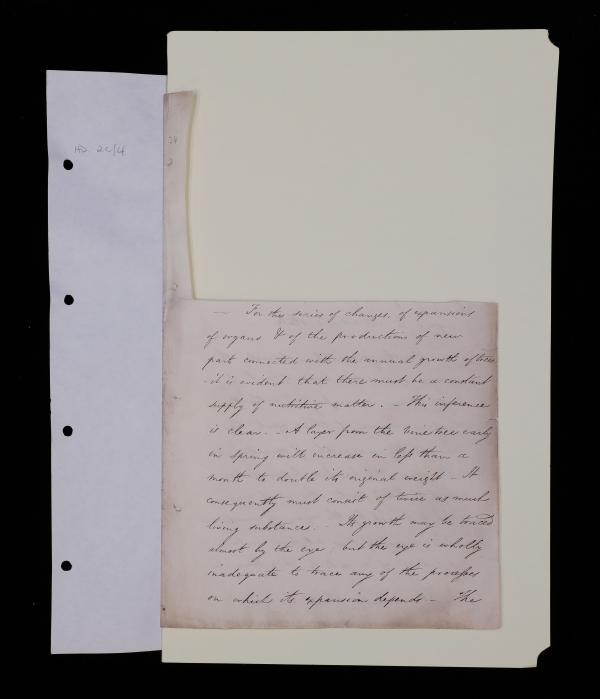 HD 26/4
24
2
— For this series of changes, of expansions
of organs & of the productions of new
part connected with the annual growth of trees
it is evident that there must be a constant
supply of nutritive matter. — This inference
is clear. — A layer from the Vine tree early
in spring will increase in less than a
month to double its original weight — It
consequently must consist of twice as much
living substance. — Its growth may be traced
almost by the eye but the eye is wholly
inadequate to trace any of the processes
on which its expansion depends — The